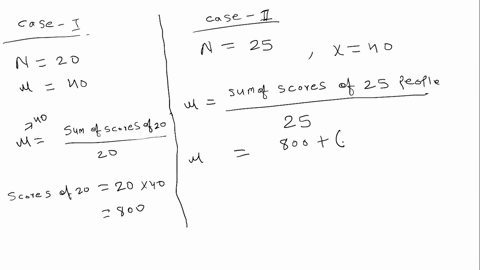 case - I
N = 20
μ = 40
→40
μ = sum of scores of 20
20
scores of 20 = 20 x 40
= 800
case - II
N = 25 , x = 40
μ = sum of scores of 25 people
25
μ = 800 + (